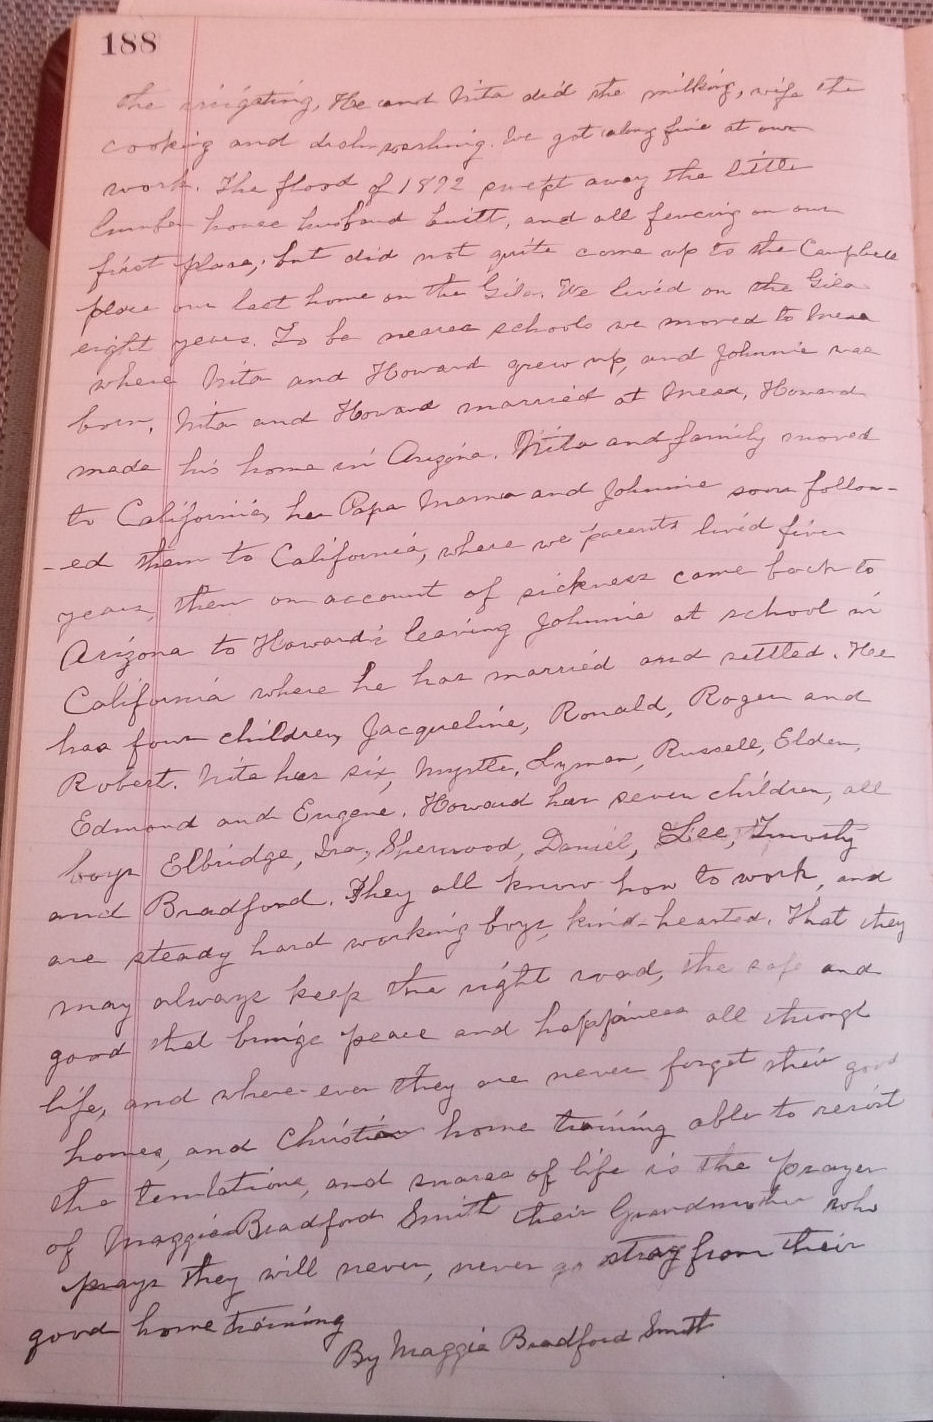 188
the irrigating, He and Nita did the milking, wife the
cooking and dish-washing. We got along fine at our
work. The flood of 1892 swept away the little
lumber house husband built, and all fencing on our
first place, but did not quite come up to the Campbell
place our last home on the Gila. We lived on the Gila
eight years. To be nearer schools we moved to Mesa
where Nita and Howard grew up, and Johnnie was
born. Nita and Howard married at Mesa, Howard
made his home in Arizona. Nita and family moved
to California, her Papa Mama and Johnnie soon follow-
-ed them to California, where we parents lived five
years, then on account of sickness came back to
Arizona to Howard's leaving Johnnie at school in
California where he has married and settled. He
has four children, Jacqueline, Ronald, Roger and
Robert. Nita has six, Myrtle, Lyman, Russell, Elden,
Edmond and Eugene. Howard has seven children, all
boys Elbridge, Ira, Sherwood, Daniel, Lee, Timothy
and Bradford. They all know how to work, and
are steady hard working boys, kind-hearted. That they
may always keep the right road, the safe and
good that brings peace and happiness all through
life, and where-ever they are never forget their good
homes, and Christian home training able to resist
the temtations, and snares of life is the prayer
of Maggie Bradford Smith their Grandmother who
prays they will never, never go stray from their
good home training
By Maggie Bradford Smith